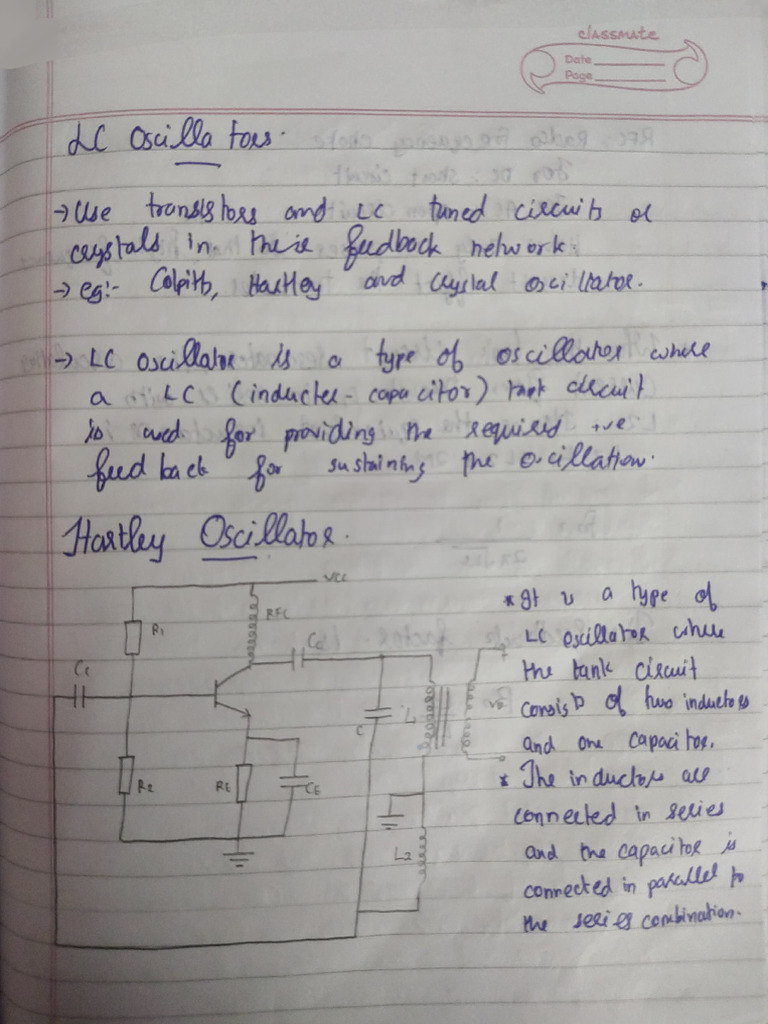 classmate
Date
Page
LC Oscillators.
→ Use transistors and LC tuned circuits or
crystals in their feedback network.
→ eg:- Colpitts, Hartley and Crystal oscillator.
→ LC oscillator is a type of oscillator where
a LC (inductor-capacitor) tank circuit
is used for providing the required +ve
feedback for sustaining the oscillation.
Hartley Oscillator.
VCC
R1
RFC
CC
C
L1
Vo
R2
RE
CE
L2
* It is a type of
LC oscillator where
the tank circuit
consists of two inductors
and one capacitor.
* The inductors are
connected in series
and the capacitor is
connected in parallel to
the series combination.